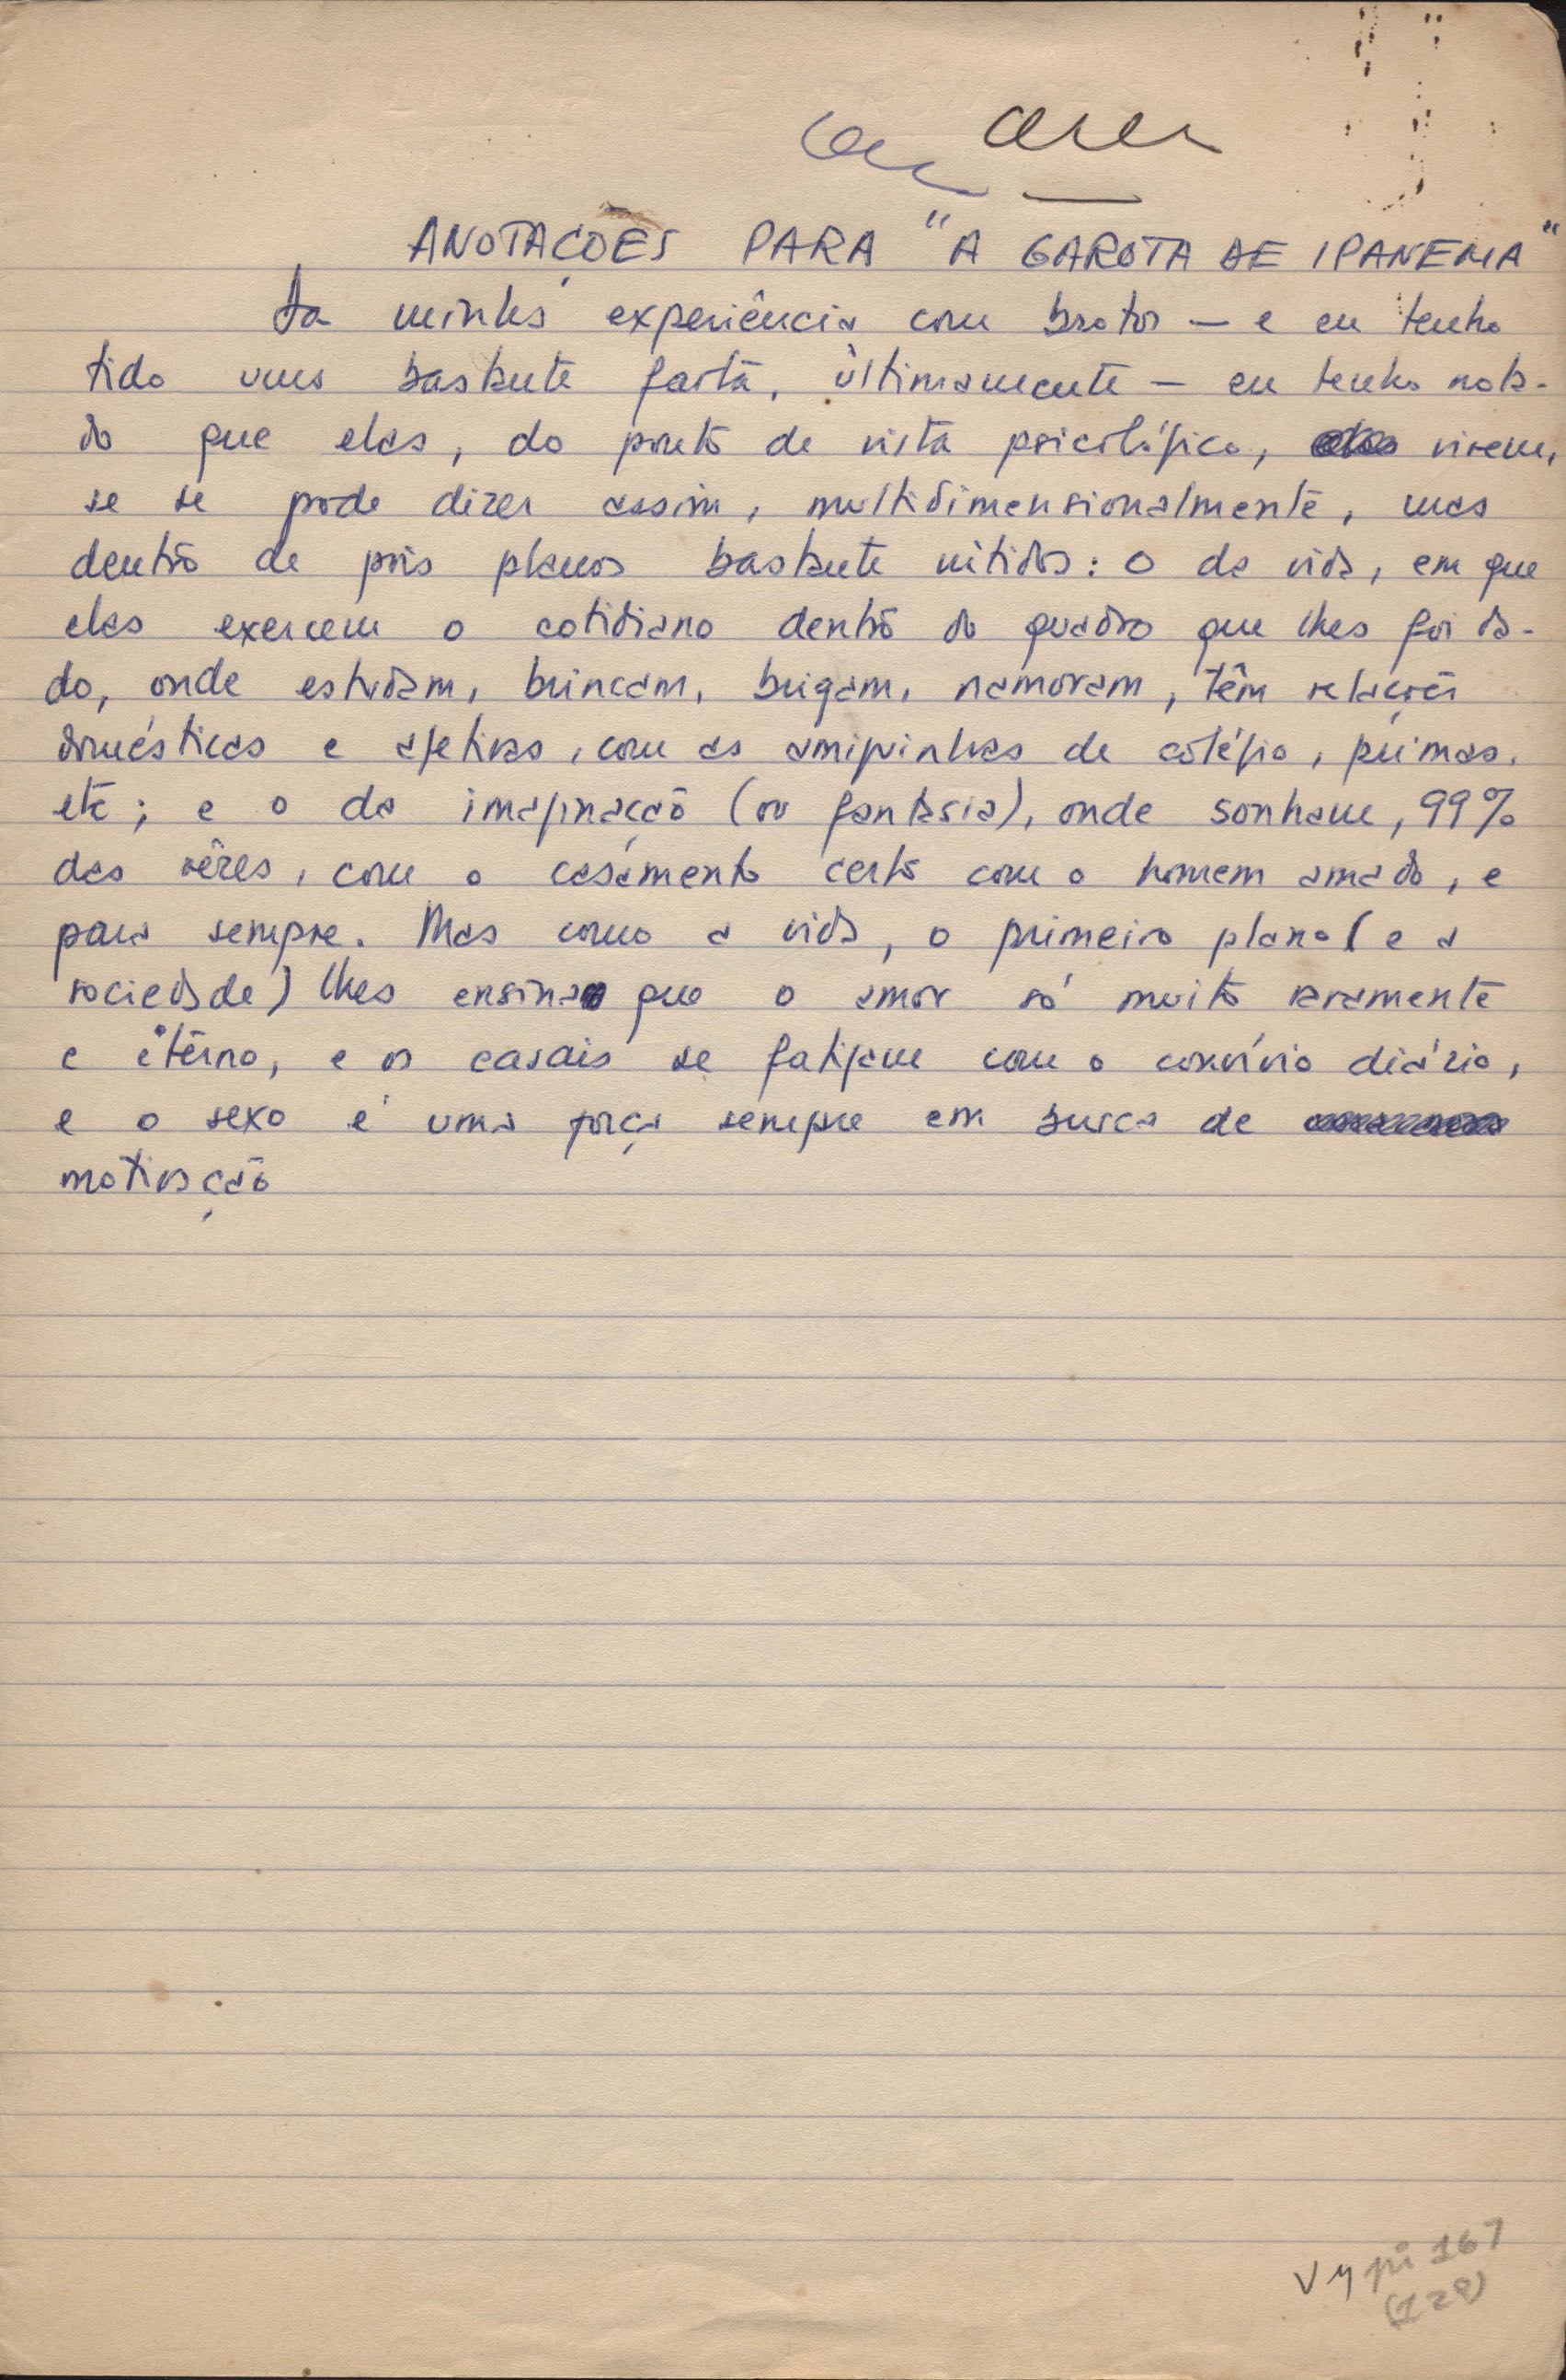 ANOTAÇÕES PARA "A GAROTA DE IPANEMA"
Da minha experiência com brotos — e eu tenho
tido uma bastante farta, ùltimamente — eu tenho nota-
do que elas, do ponto de vista psicológico, vivem,
se se pode dizer assim, multidimensionalmente, mas
dentro de dois planos bastante nítidos: o da vida, em que
elas exercem o cotidiano dentro do quadro que lhes foi da-
do, onde estudam, brincam, brigam, namoram, têm relações
domésticas e afetivas, com as amiguinhas de colégio, primas,
etc; e o da imaginação (ou fantasia), onde sonham, 99%
das vêzes, com o casamento certo com o homem amado, e
para sempre. Mas como a vida, o primeiro plano (e a
sociedade) lhes ensina que o amor só muito raramente
é eterno, e os casais se fatigam com o convívio diário,
e o sexo é uma força sempre em busca de
motivação
Vm pi 167
(128)